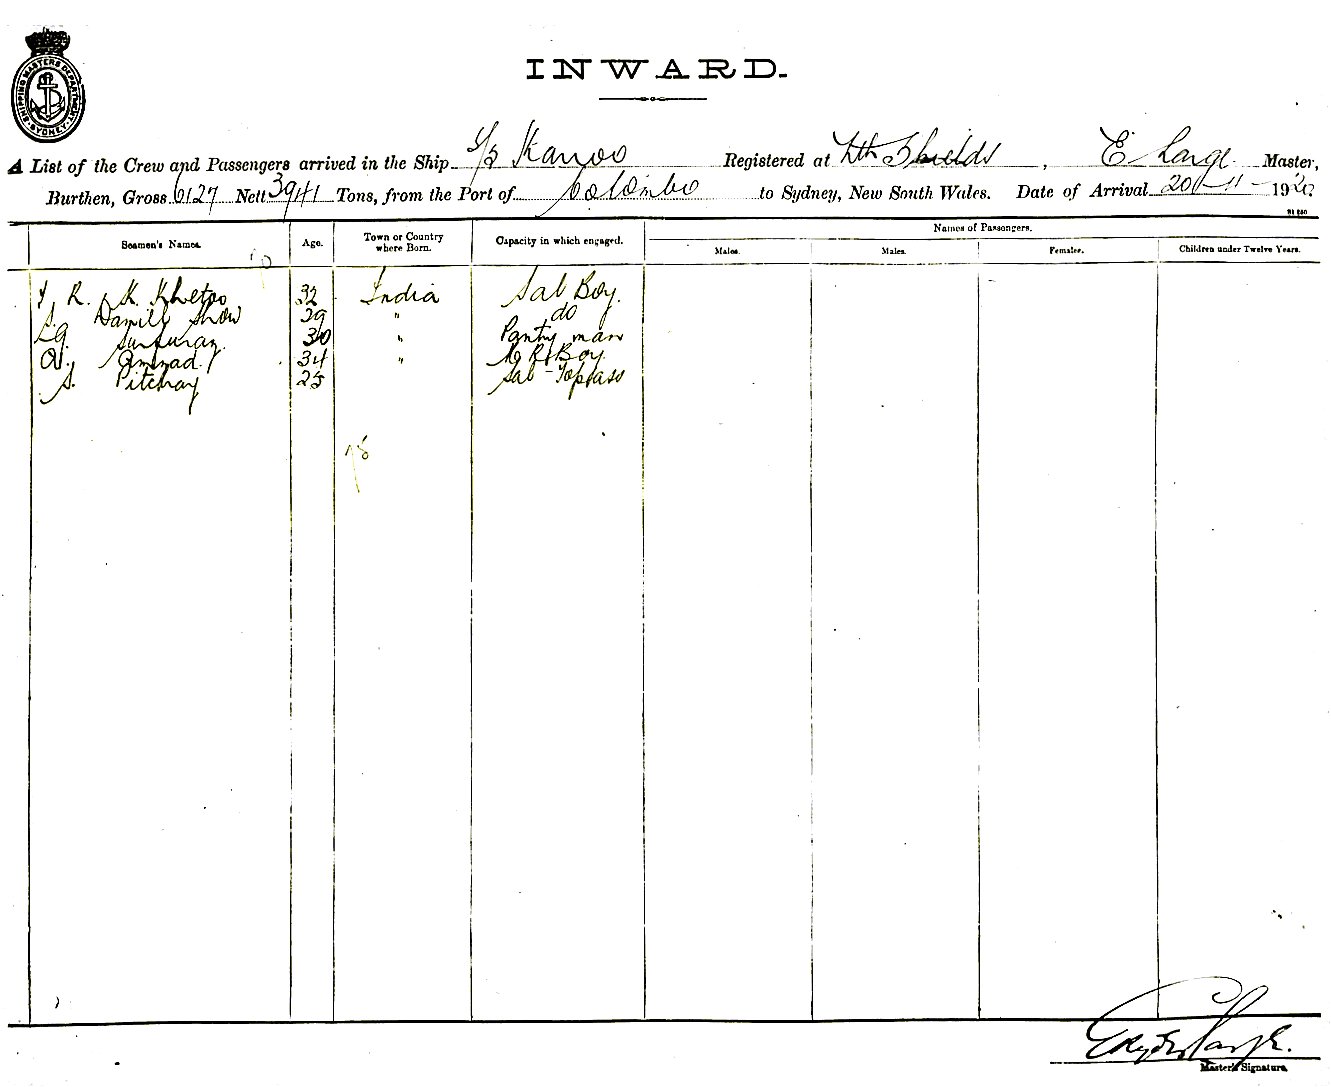 SHIPPING MASTERS DEPARTMENT
SYDNEY
INWARD.
A List of the Crew and Passengers arrived in the Ship S/S Karroo Registered at Nth Shields, E Large Master,
Burthen, Gross 6127 Nett 3941 Tons, from the Port of Colombo to Sydney, New South Wales. Date of Arrival 20-11-19
Names of Passengers.
Seamen's Names. Age. Town or Country where Born. Capacity in which engaged. Males. Males. Females. Children under Twelve Years.
R. K. Khetoo 32 India Sal Boy.
S. Show 29 " do
30 " Pantry man
A. Ammad 34 " M R Boy.
S. Pitchay 25 Sal - Topass
78
Large.
Master's Signature.